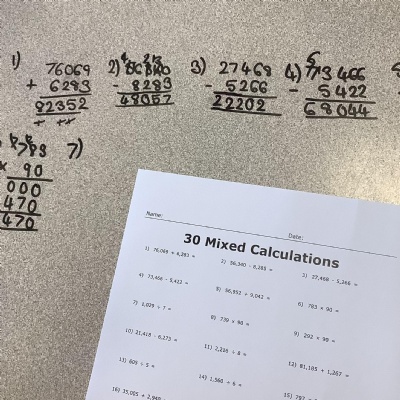 1) 76069
+ 6283
82352
2) 56340
- 8283
48057
3) 27468
- 5266
22202
4) 73466
- 5422
68044
783
× 90
000
470
470
7)
Name:
Date:
30 Mixed Calculations
1) 76,069 + 6,283 =
2) 56,340 - 8,283 =
3) 27,468 - 5,266 =
4) 73,466 - 5,422 =
5) 56,952 + 9,042 =
6) 783 × 90 =
7) 1,029 ÷ 7 =
8) 739 × 98 =
9) 292 × 99 =
10) 21,418 - 6,273 =
11) 2,296 ÷ 8 =
12) 81,185 + 1,267 =
13) 605 ÷ 5 =
14) 1,560 ÷ 6 =
15) 797
16) 15,005 + 2,948